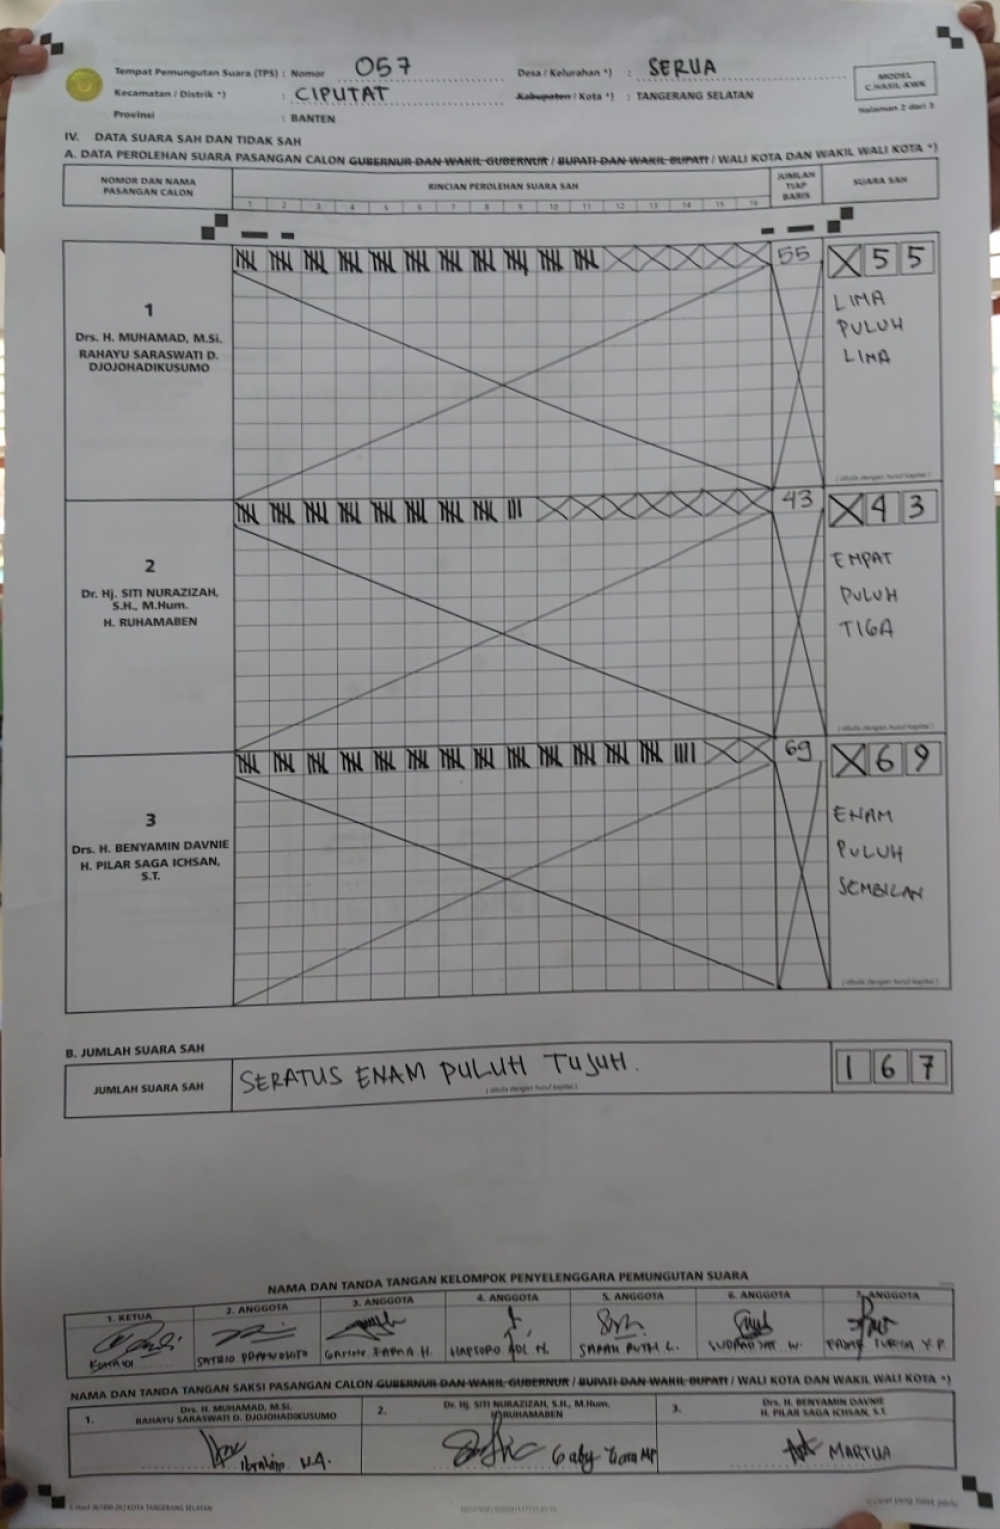 Tempat Pemungutan Suara (TPS) : Nomor 057
Desa / Kelurahan *) : SERUA
Kecamatan / Distrik *) : CIPUTAT
Kabupaten / Kota *) : TANGERANG SELATAN
Provinsi : BANTEN
MODEL
C.HASIL-KWK
Halaman 2 dari 3
IV. DATA SUARA SAH DAN TIDAK SAH
A. DATA PEROLEHAN SUARA PASANGAN CALON GUBERNUR DAN WAKIL GUBERNUR / BUPATI DAN WAKIL BUPATI / WALI KOTA DAN WAKIL WALI KOTA *)
NOMOR DAN NAMA PASANGAN CALON
RINCIAN PEROLEHAN SUARA SAH
JUMLAH TIAP BARIS
SUARA SAH
1 2 3 4 5 6 7 8 9 10 11 12 13 14 15 16
1
Drs. H. MUHAMAD, M.Si.
RAHAYU SARASWATI D.
DJOJOHADIKUSUMO
55
X 5 5
LIMA
PULUH
LIMA
(ditulis dengan huruf kapital)
2
Dr. Hj. SITI NURAZIZAH,
S.H., M.Hum.
H. RUHAMABEN
43
X 4 3
EMPAT
PULUH
TIGA
(ditulis dengan huruf kapital)
3
Drs. H. BENYAMIN DAVNIE
H. PILAR SAGA ICHSAN,
S.T.
69
X 6 9
ENAM
PULUH
SEMBILAN
(ditulis dengan huruf kapital)
B. JUMLAH SUARA SAH
JUMLAH SUARA SAH
SERATUS ENAM PULUH TUJUH.
(ditulis dengan huruf kapital)
1 6 7
NAMA DAN TANDA TANGAN KELOMPOK PENYELENGGARA PEMUNGUTAN SUARA
1. KETUA
2. ANGGOTA
3. ANGGOTA
4. ANGGOTA
5. ANGGOTA
6. ANGGOTA
7. ANGGOTA
KOMAIDI
SARAH RUTH L.
NAMA DAN TANDA TANGAN SAKSI PASANGAN CALON GUBERNUR DAN WAKIL GUBERNUR / BUPATI DAN WAKIL BUPATI / WALI KOTA DAN WAKIL WALI KOTA *)
1. Drs. H. MUHAMAD, M.Si.
RAHAYU SARASWATI D. DJOJOHADIKUSUMO
2. Dr. Hj. SITI NURAZIZAH, S.H., M.Hum.
H. RUHAMABEN
3. Drs. H. BENYAMIN DAVNIE
H. PILAR SAGA ICHSAN, S.T.
Ibrahim W.A.
Gaby
MARTUA
KOTA TANGERANG SELATAN
*) Coret yang tidak perlu